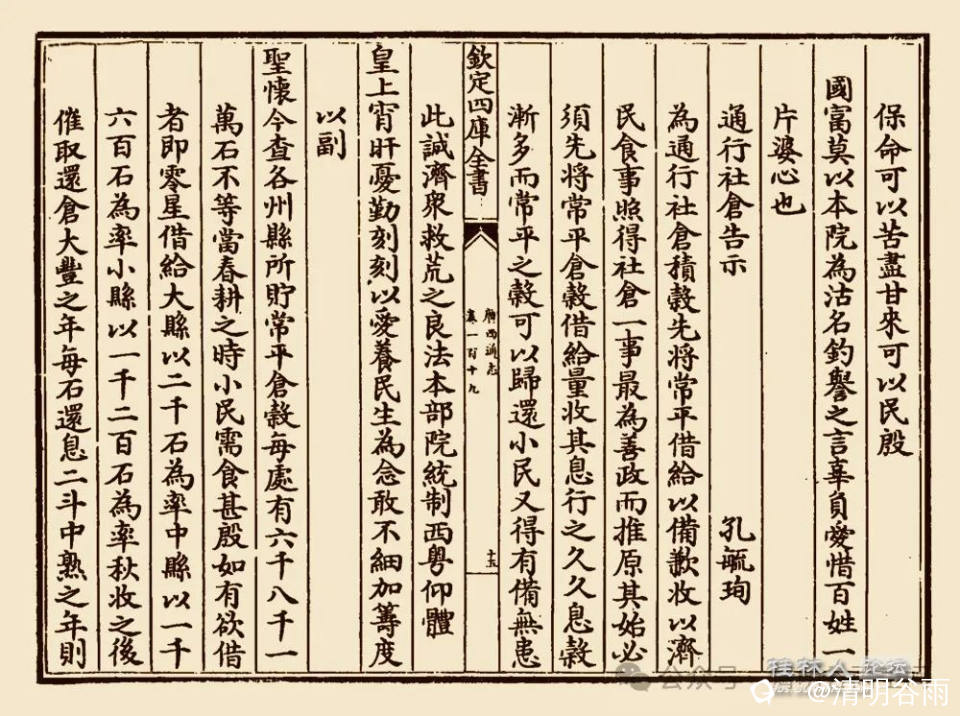 保命可以苦盡甘來可以民殷
國富莫以本院為沽名釣譽之言辜負愛惜百姓一
片婆心也
通行社倉告示 孔毓珣
為通行社倉積穀先將常平借給以備歉收以濟
民食事照得社倉一事最為善政而推原其始必
須先將常平倉穀借給量收其息行之久久息穀
漸多而常平之穀可以歸還小民又得有備無患
欽定四庫全書
廣西通志
卷一百十九
十五
此誠濟衆救荒之良法本部院統制西粵仰體
皇上宵旰憂勤刻刻以愛養民生為念敢不細加籌度
以副
聖懷今查各州縣所貯常平倉穀每處有六千八千一
萬石不等當春耕之時小民需食甚殷如有欲借
者即零星借給大縣以二千石為率中縣以一千
六百石為率小縣以一千二百石為率秋收之後
催取還倉大豐之年每石還息二斗中熟之年則
桂林人论坛
公众号
@清明谷雨